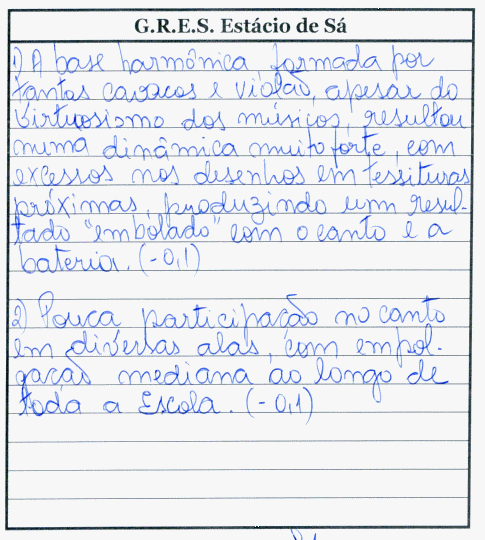 G.R.E.S. Estácio de Sá
1) A base harmônica formada por
tantos cavacos e violão, apesar do
virtuosismo dos músicos, resultou
numa dinâmica muito forte, com
excessos nos desenhos em tessituras
próximas, produzindo um resul-
tado "embolado" com o canto e a
bateria. (-0,1)
2) Pouca participação no canto
em diversas alas, com empol-
gação mediana ao longo de
toda a Escola. (-0,1)